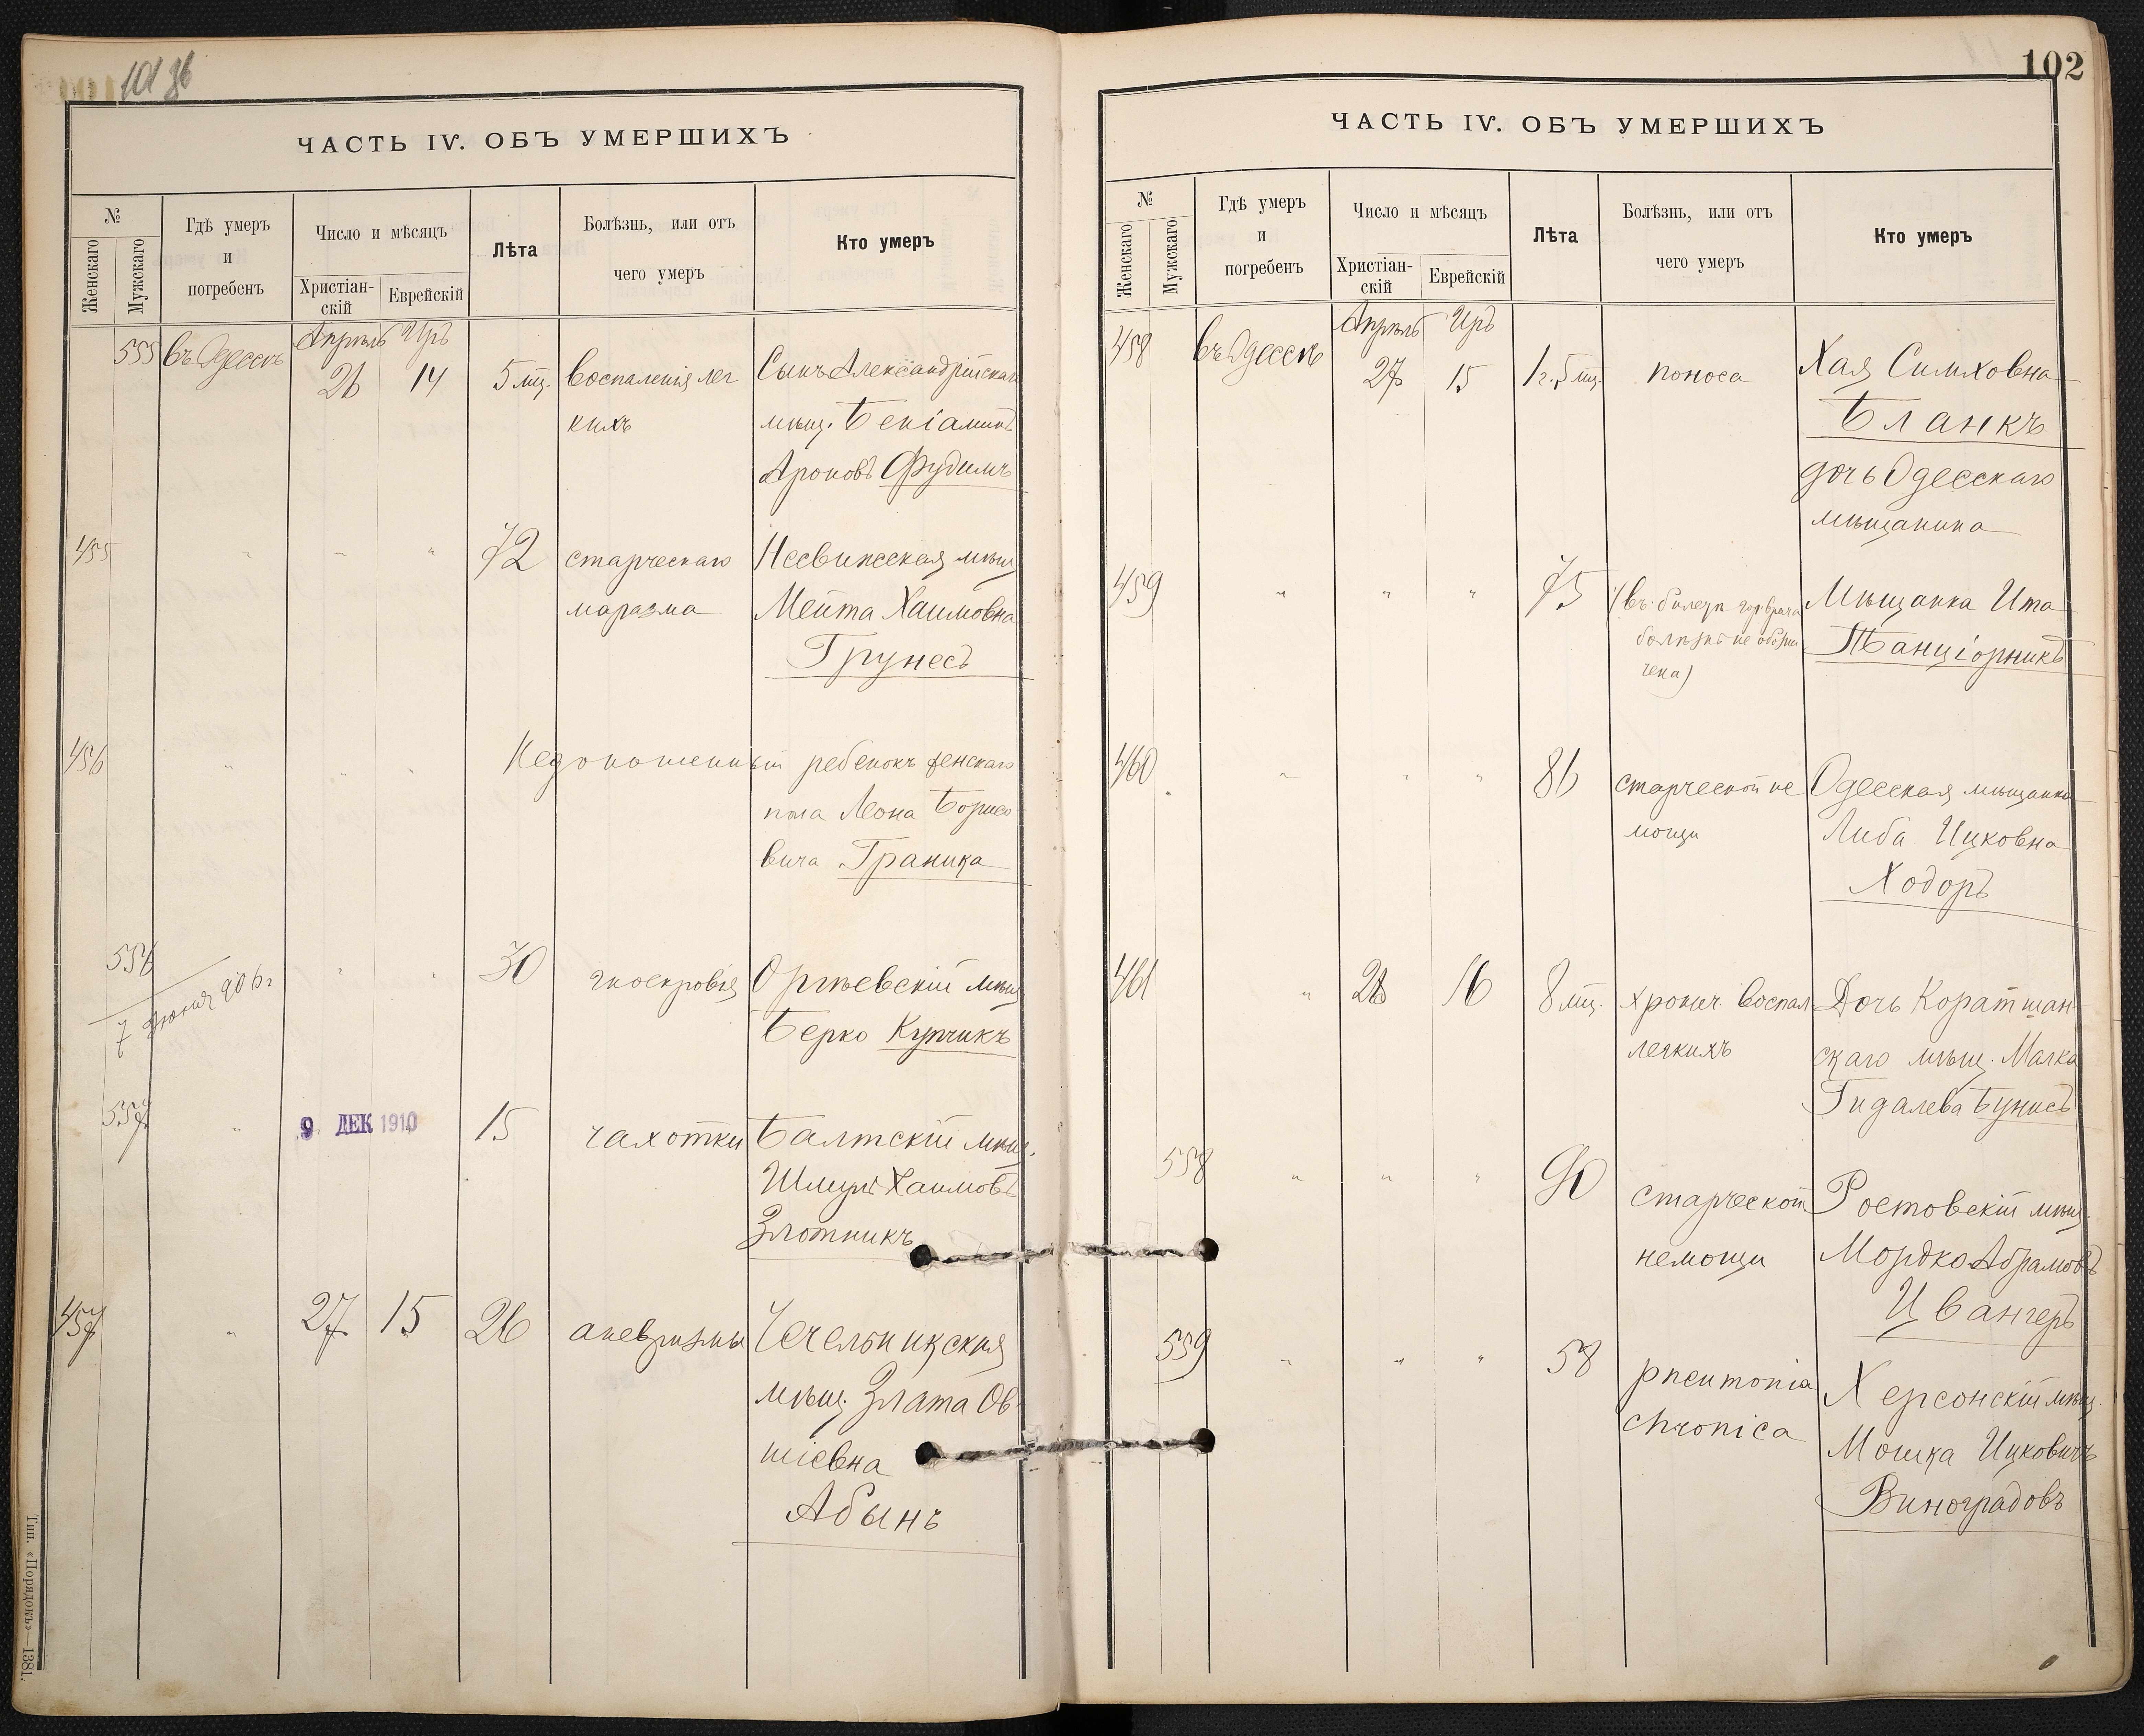 101 об
ЧАСТЬ IV. ОБЪ УМЕРШИХЪ
№
Женскаго
Мужскаго
Гдѣ умеръ
и
погребенъ
Число и мѣсяцъ
Христіан-
скій
Еврейскій
Лѣта
Болѣзнь, или отъ
чего умеръ
Кто умеръ
Апрѣль Иръ
555 въ Одессѣ 26 14 5 мц. воспаленія лег Сынъ Александрійскаго
кихъ мѣщ. Беніаминъ
Ароновъ Фудимъ
455 " " " 72 старческаго Несвижсская мѣщ
маразма Мейта Хаимовна
Грунесъ
456 " " " Недоношенный ребенокъ женскаго
пола Леона Борисо
вича Граника
556 " " 30 Оргѣевскій мѣщ
7 Іюня 906 г Берко Купчикъ
557 " 9 ДЕК 1910 15 чахотки Балтскій мѣщ.
Шмулъ Хаимовъ
Злотникъ
457 " 27 15 26 аневризмы Чечельницкая
мѣщ. Злата Ов
шіевна
Абынъ
Тип. «Порядокъ»—1381.
102
ЧАСТЬ IV. ОБЪ УМЕРШИХЪ
№
Женскаго
Мужскаго
Гдѣ умеръ
и
погребенъ
Число и мѣсяцъ
Христіан-
скій
Еврейскій
Лѣта
Болѣзнь, или отъ
чего умеръ
Кто умеръ
Апрѣль Иръ
458 въ Одессѣ 27 15 1 г. 5 мц. поноса Хая Симховна
Бланкъ
дочь Одесскаго
мѣщанина
459 " " " 75 (въ билетѣ гор врача Мѣщанка Ита
болѣзнь не обозна Танціорникъ
чена)
460 " " " 86 старческой не Одесская мѣщанка
мощи Либа Ицковна
Ходоръ
461 " 28 16 8 мц. хронич воспал Дочь Коратшан
легкихъ скаго мѣщ. Малка
Гидалева Бунисъ
558 " " " 90 старческой Ростовскій мѣщ.
немощи Мордко Абрамовъ
Цвангеръ
559 " " " 58 pneumonia Херсонскій мѣщ.
chronica Мошка Ицковичъ
Виноградовъ